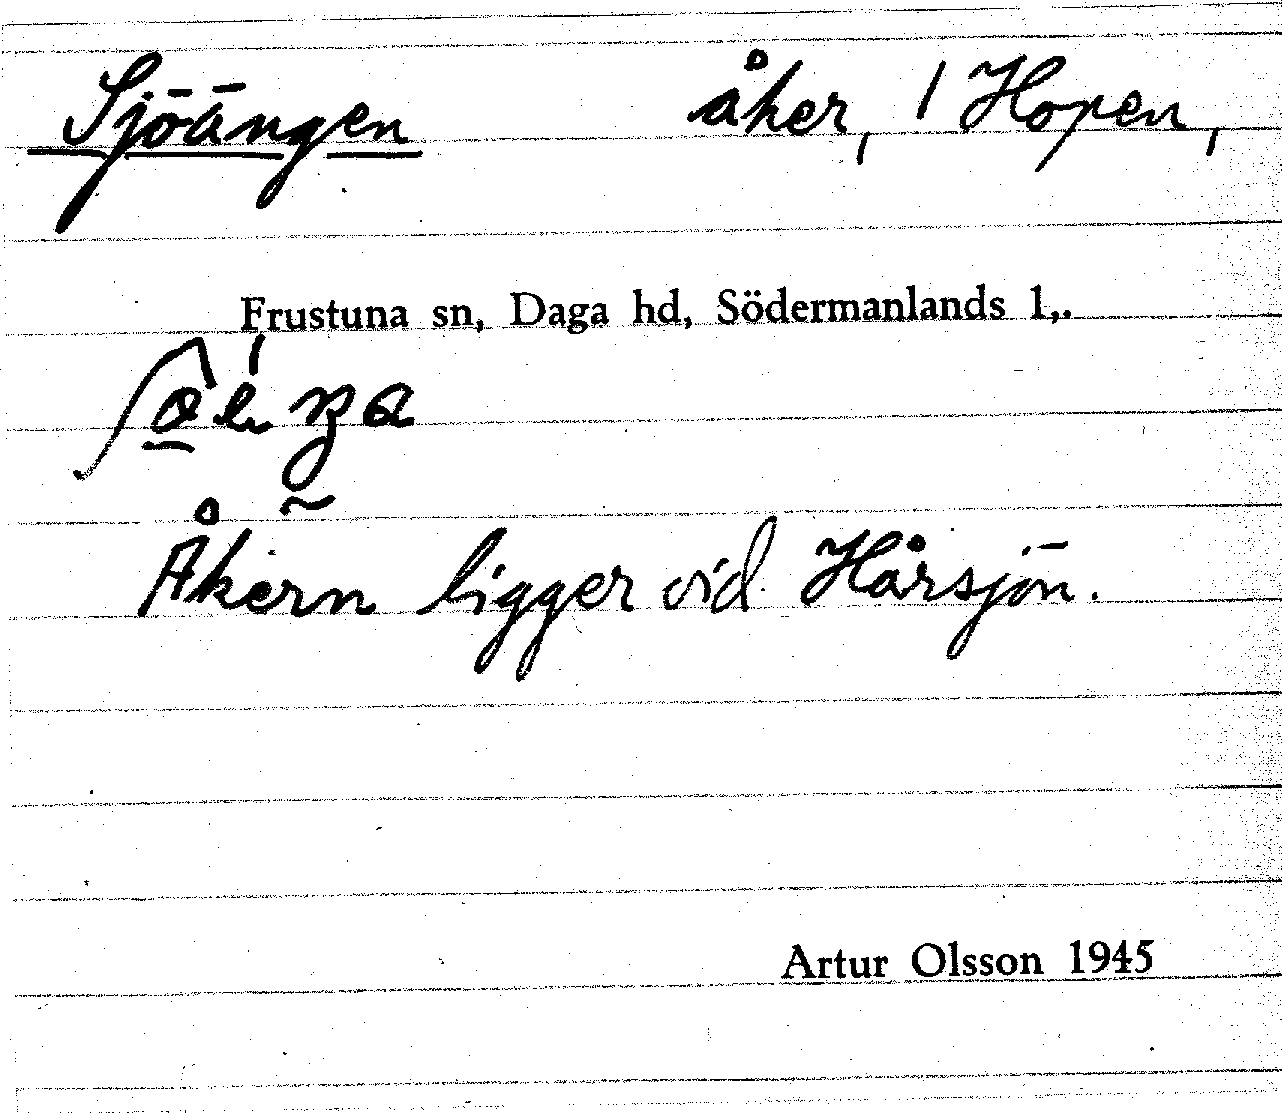 Sjöängen åker, 1 Hopen,
Frustuna sn, Daga hd, Södermanlands l,.
Åkern ligger vid Hårsjön.
Artur Olsson 1945